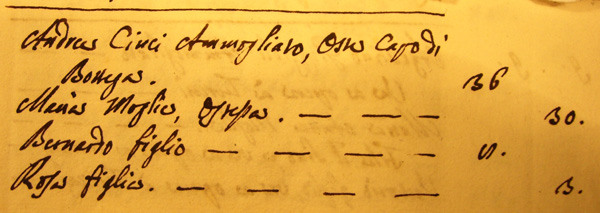 Andrea Cinci Ammogliato, Oste Capo di
Bottega. 36
Maria Moglie, Ostessa. — — — 30.
Bernardo figlio — — — — 
Rosa figlia. — — — — 3.